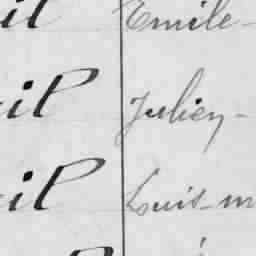 il Emile-
il Julien-
il Louis-m